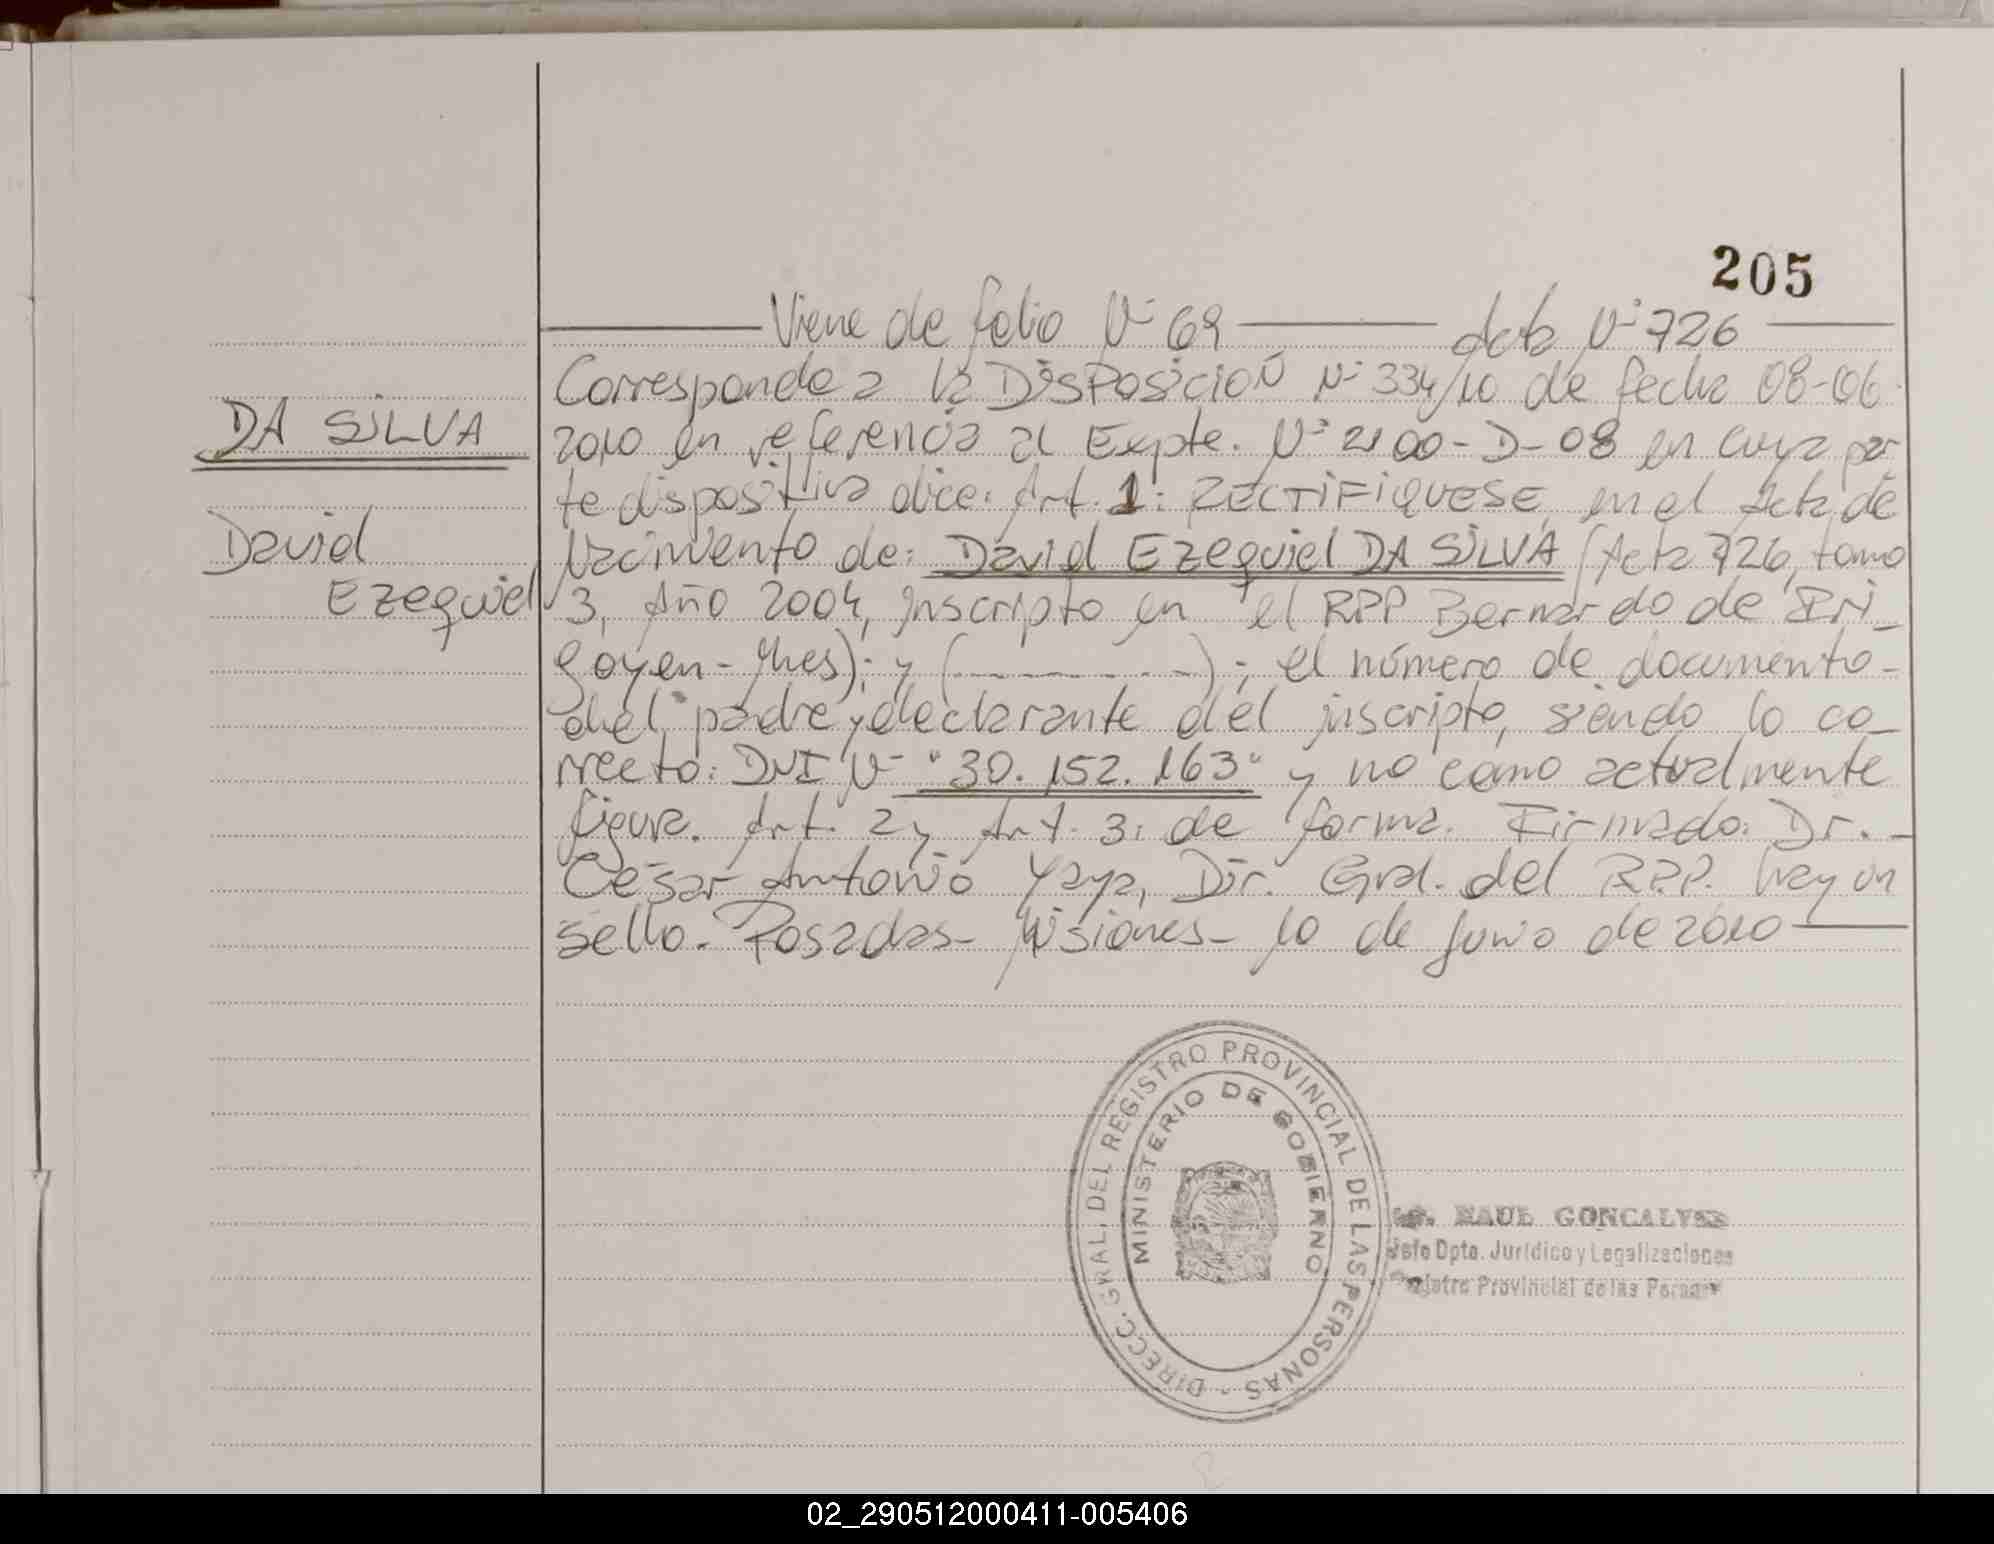 205
Viene de folio N° 69 Acta N° 726
DA SILVA
David
Ezequiel
Corresponde a la DISPOSICION N° 334/10 de fecha 08-06-
2010 en referencia al Expte. N° 2100-D-08 en cuya par
te dispositiva dice: Art. 1: RECTIFIQUESE, en el Acta de
Nacimiento de: David Ezequiel DA SILVA (Acta 726, tomo
3, Año 2004, inscripto en el RPP Bernardo de Iri_
goyen-Mnes); y (---------); el número de documento-
del padre y declarante del inscripto, siendo lo co_
rrecto: DNI N° "30.152.163" y no como actualmente
figura. Art. 2 y Art. 3: de forma. Firmado: Dr. -
César Antonio Yaya, Dir. Gral. del R.P.P. hay un
sello. Posadas- Misiones- 10 de Junio de 2010
DIRECC. GRAL. DEL REGISTRO PROVINCIAL DE LAS PERSONAS -
MINISTERIO DE GOBIERNO
RAUL GONCALVES
Jefe Dpto. Jurídico y Legalizaciones
Registro Provincial de las Personas
02_290512000411-005406